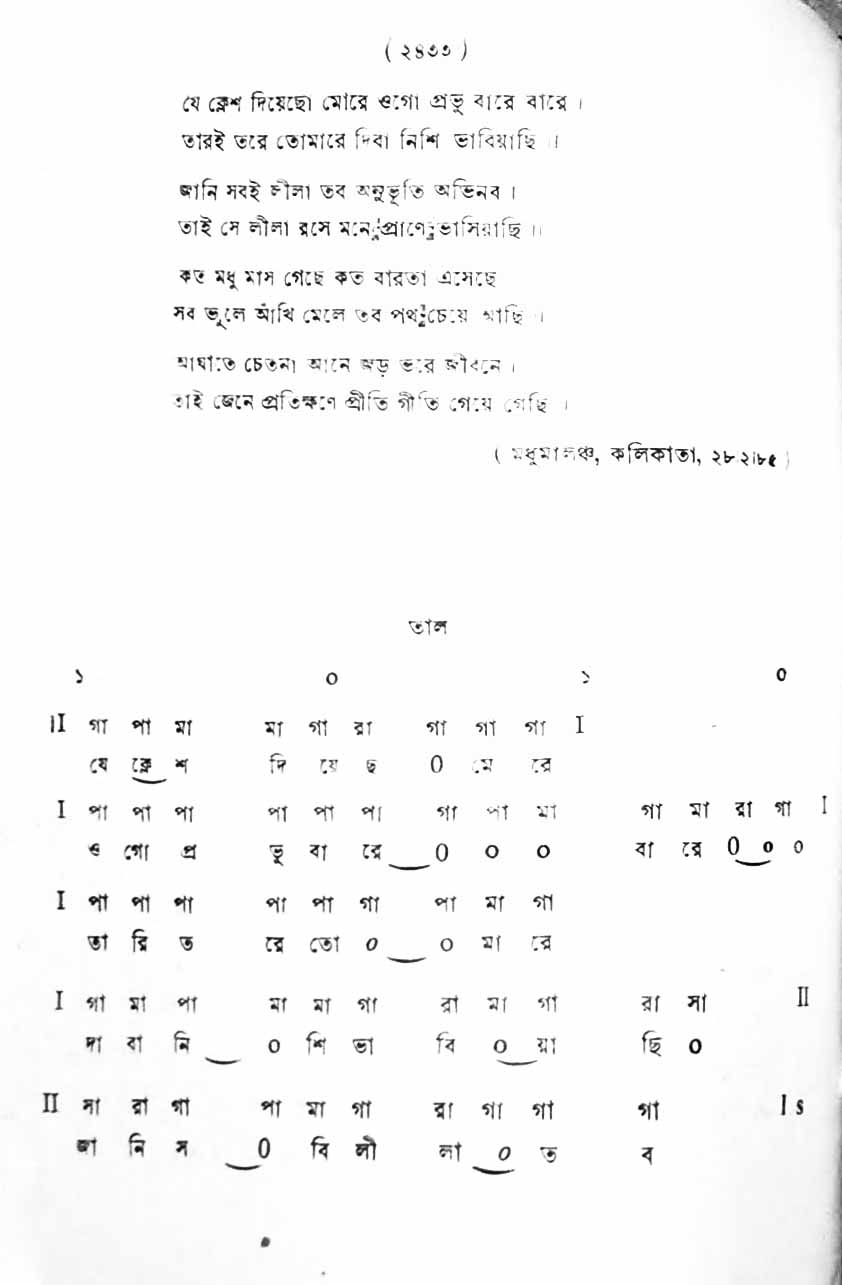 ( ২৪৩৩ )
যে ক্লেশ দিয়েছো মোরে ওগো প্রভু বারে বারে ।
তারই তরে তোমারে দিবা নিশি ভাবিয়াছি ।।
জানি সবই লীলা তব অনুভূতি অভিনব ।
তাই সে লীলা রসে মনে প্রাণে ভাসিয়াছি ।।
কত মধু মাস গেছে কত বারতা এসেছে
সব ভুলে আঁখি মেলে তব পথ চেয়ে আছি ।
আঘাতে চেতনা আনে জড় ভরে জীবনে ।
তাই জেনে প্রতিক্ষণে প্রীতি গীতি গেয়ে গেছি ।
( মধুমালঞ্চ, কলিকাতা, ২৮.২।৮৫ )
তাল
১ ০ ১ ০
II গা পা মা মা গা রা গা গা গা I
যে ক্লে শ দি য়ে ছ 0 মে রে
I পা পা পা পা পা পা গা পা মা গা মা রা গা I
ও গো প্র ভু বা রে 0 ০ ০ বা রে 0 ০ ০
I পা পা পা পা পা গা পা মা গা
তা রি ত রে তো ০ ০ মা রে
I গা মা পা মা মা গা রা মা গা রা সা II
দা বা নি ০ শি ভা বি ০ য়া ছি ০
II সা রা গা পা মা গা রা গা গা গা I s
জা নি স 0 বি লী লা ০ ত ব